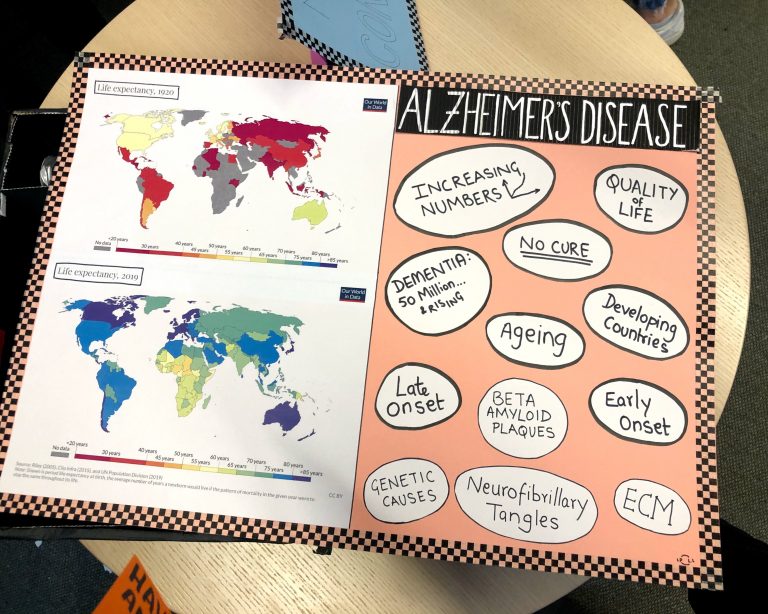 CON
Life expectancy, 1920
Our World
in Data
No data
<20 years
30 years
40 years
45 years
50 years
60 years
65 years
70 years
75 years
80 years
>85 years
Life expectancy, 2019
Our World
in Data
No data
<20 years
30 years
40 years
45 years
50 years
55 years
60 years
65 years
70 years
75 years
80 years
>85 years
Source: Riley (2005), Clio Infra (2015), and UN Population Division (2019)
Note: Shown is period life expectancy at birth, the average number of years a newborn would live if the pattern of mortality in the given year were to
stay the same throughout its life.
CC BY
ALZHEIMER'S DISEASE
INCREASING
NUMBERS
QUALITY
of
LIFE
NO CURE
DEMENTIA:
50 Million...
& RISING
Developing
Countries
Ageing
Late
Onset
BETA
AMYLOID
PLAQUES
Early
Onset
GENETIC
CAUSES
Neurofibrillary
Tangles
ECM
HAV